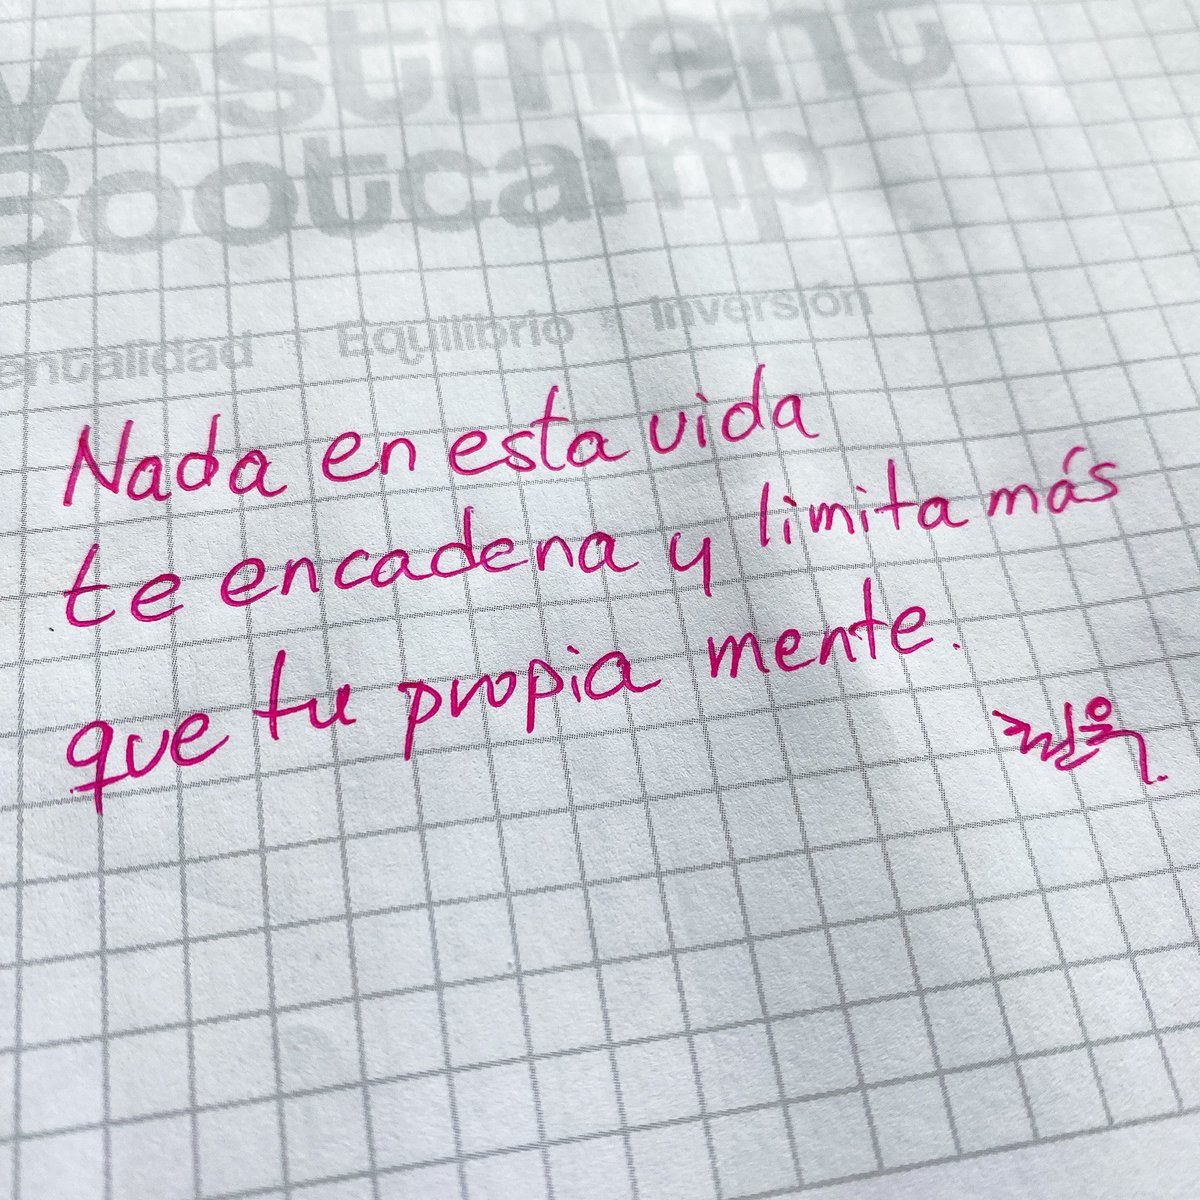 vestment
Bootcamp
entalidad | Equilibrio Inversión
Nada en esta vida
te encadena y limita más
que tu propia mente.